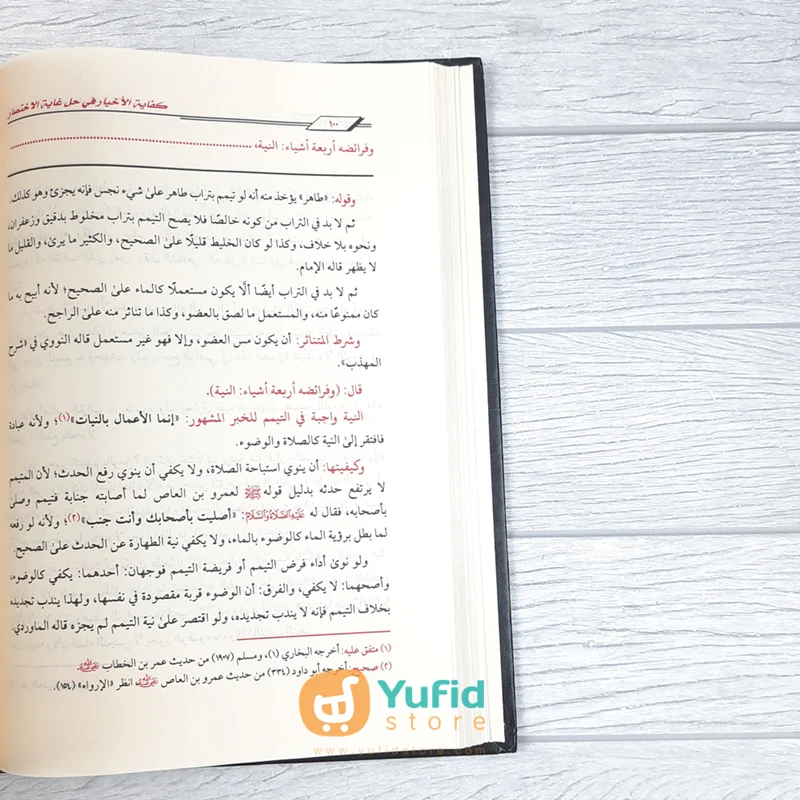 كفاية الأخيار في حل غاية الاختصار
١٠٠
وفرائضه أربعة أشياء: النية،
وقوله: «طاهر» يؤخذ منه أنه لو تيمم بتراب طاهر علىٰ شيء نجس فإنه يجزئ وهو كذلك.
ثم لا بد في التراب من كونه خالصًا فلا يصح التيمم بتراب مخلوط بدقيق وزعفران،
ونحوه بلا خلاف، وكذا لو كان الخليط قليلًا علىٰ الصحيح، والكثير ما يرىٰ، والقليل ما
لا يظهر قاله الإمام.
ثم لا بد في التراب أيضًا ألَّا يكون مستعملًا كالماء علىٰ الصحيح؛ لأنه أبيح به ما
كان ممنوعًا منه، والمستعمل ما لصق بالعضو، وكذا ما تناثر منه علىٰ الراجح.
وشرط المتناثر: أن يكون مس العضو، وإلا فهو غير مستعمل قاله النووي في «شرح
المهذب».
قال: (وفرائضه أربعة أشياء: النية).
النية واجبة في التيمم للخبر المشهور: «إنما الأعمال بالنيات»(١)؛ ولأنه عبادة
فافتقر إلىٰ النية كالصلاة والوضوء.
وكيفيتها: أن ينوي استباحة الصلاة، ولا يكفي أن ينوي رفع الحدث؛ لأن المتيمم
لا يرتفع حدثه بدليل قوله ﷺ لعمرو بن العاص لما أصابته جنابة فتيمم وصلىٰ
بأصحابه، فقال له عَلَيْهِ الصَّلَاةُ وَالسَّلَامُ: «أصليت بأصحابك وأنت جنب»(٢)؛ ولأنه لو رفعه
لما بطل برؤية الماء كالوضوء بالماء، ولا يكفي نية الطهارة عن الحدث علىٰ الصحيح.
ولو نوىٰ أداء فرض التيمم أو فريضة التيمم فوجهان: أحدهما: يكفي كالوضوء،
وأصحهما: لا يكفي، والفرق: أن الوضوء قربة مقصودة في نفسها، ولهذا يندب تجديده
بخلاف التيمم فإنه لا يندب تجديده، ولو اقتصر علىٰ نية التيمم لم يجزه قاله الماوردي.
(١) متفق عليه: أخرجه البخاري (١)، ومسلم (١٩٠٧) من حديث عمر بن الخطاب رَضِيَ اللهُ عَنْهُ
(٢) صحيح: أخرجه أبو داود (٣٣٤) من حديث عمرو بن العاص رَضِيَ اللهُ عَنْهُ انظر «الإرواء» (١٥٤).
Yufid
store
www.yufidstore.com